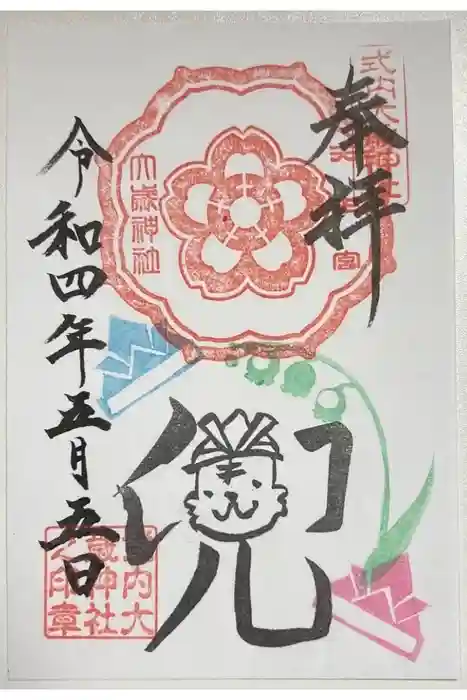 奉拝
式内大歳神社
大歳神社
宮
兜
令和四年五月五日
式内大
歳神社
之印章